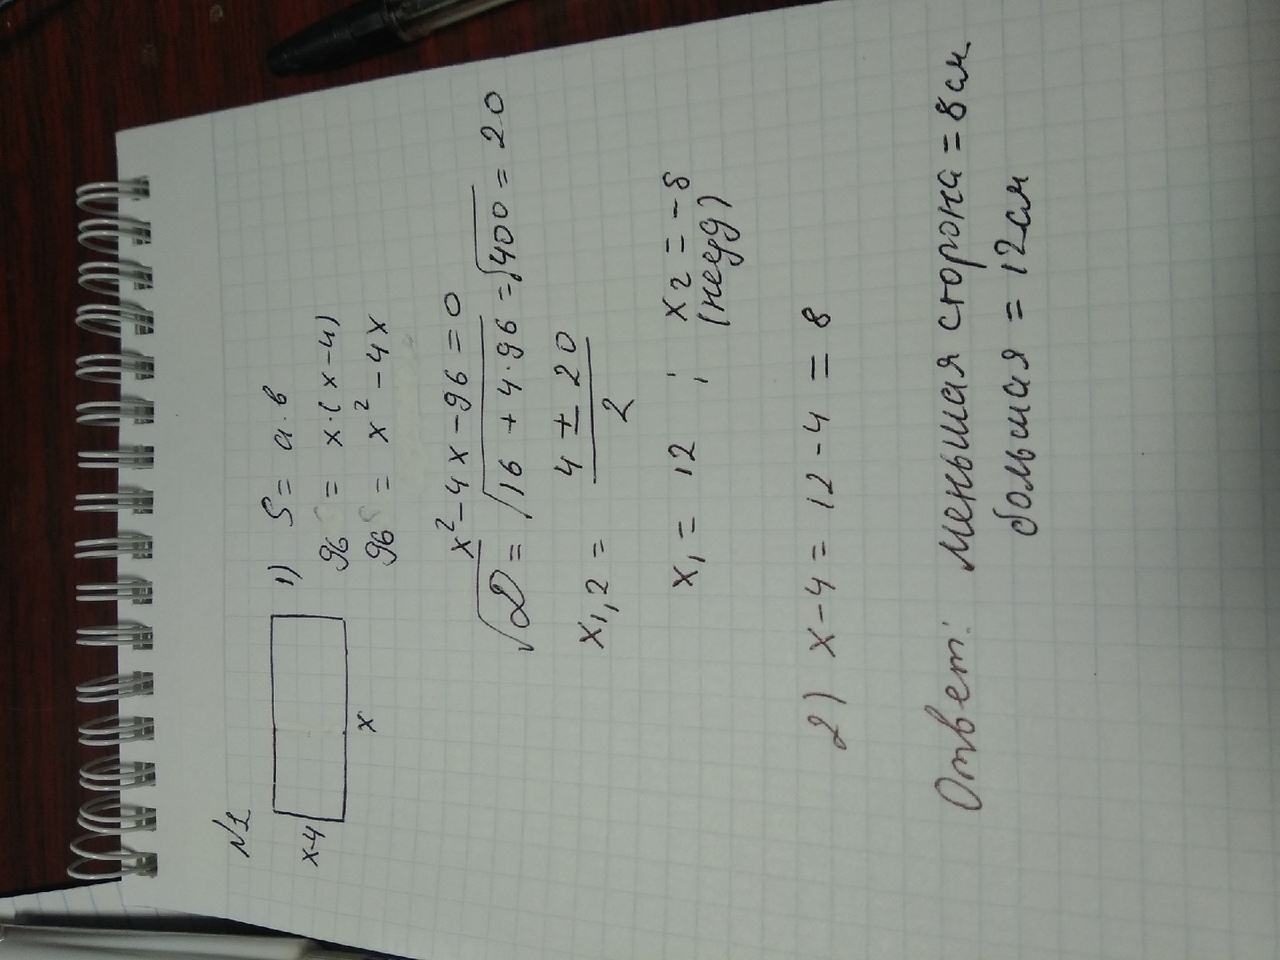 №1
x-4
x
1) S = a·b
96 = x·(x-4)
96 = x² - 4x
x² - 4x - 96 = 0
√D = √16 + 4·96 = √400 = 20
x1,2 = 4 ± 20 / 2
x₁ = 12 ; x₂ = -8
(неуд)
2) x-4 = 12-4 = 8
Ответ: меньшая сторона = 8см
большая = 12см